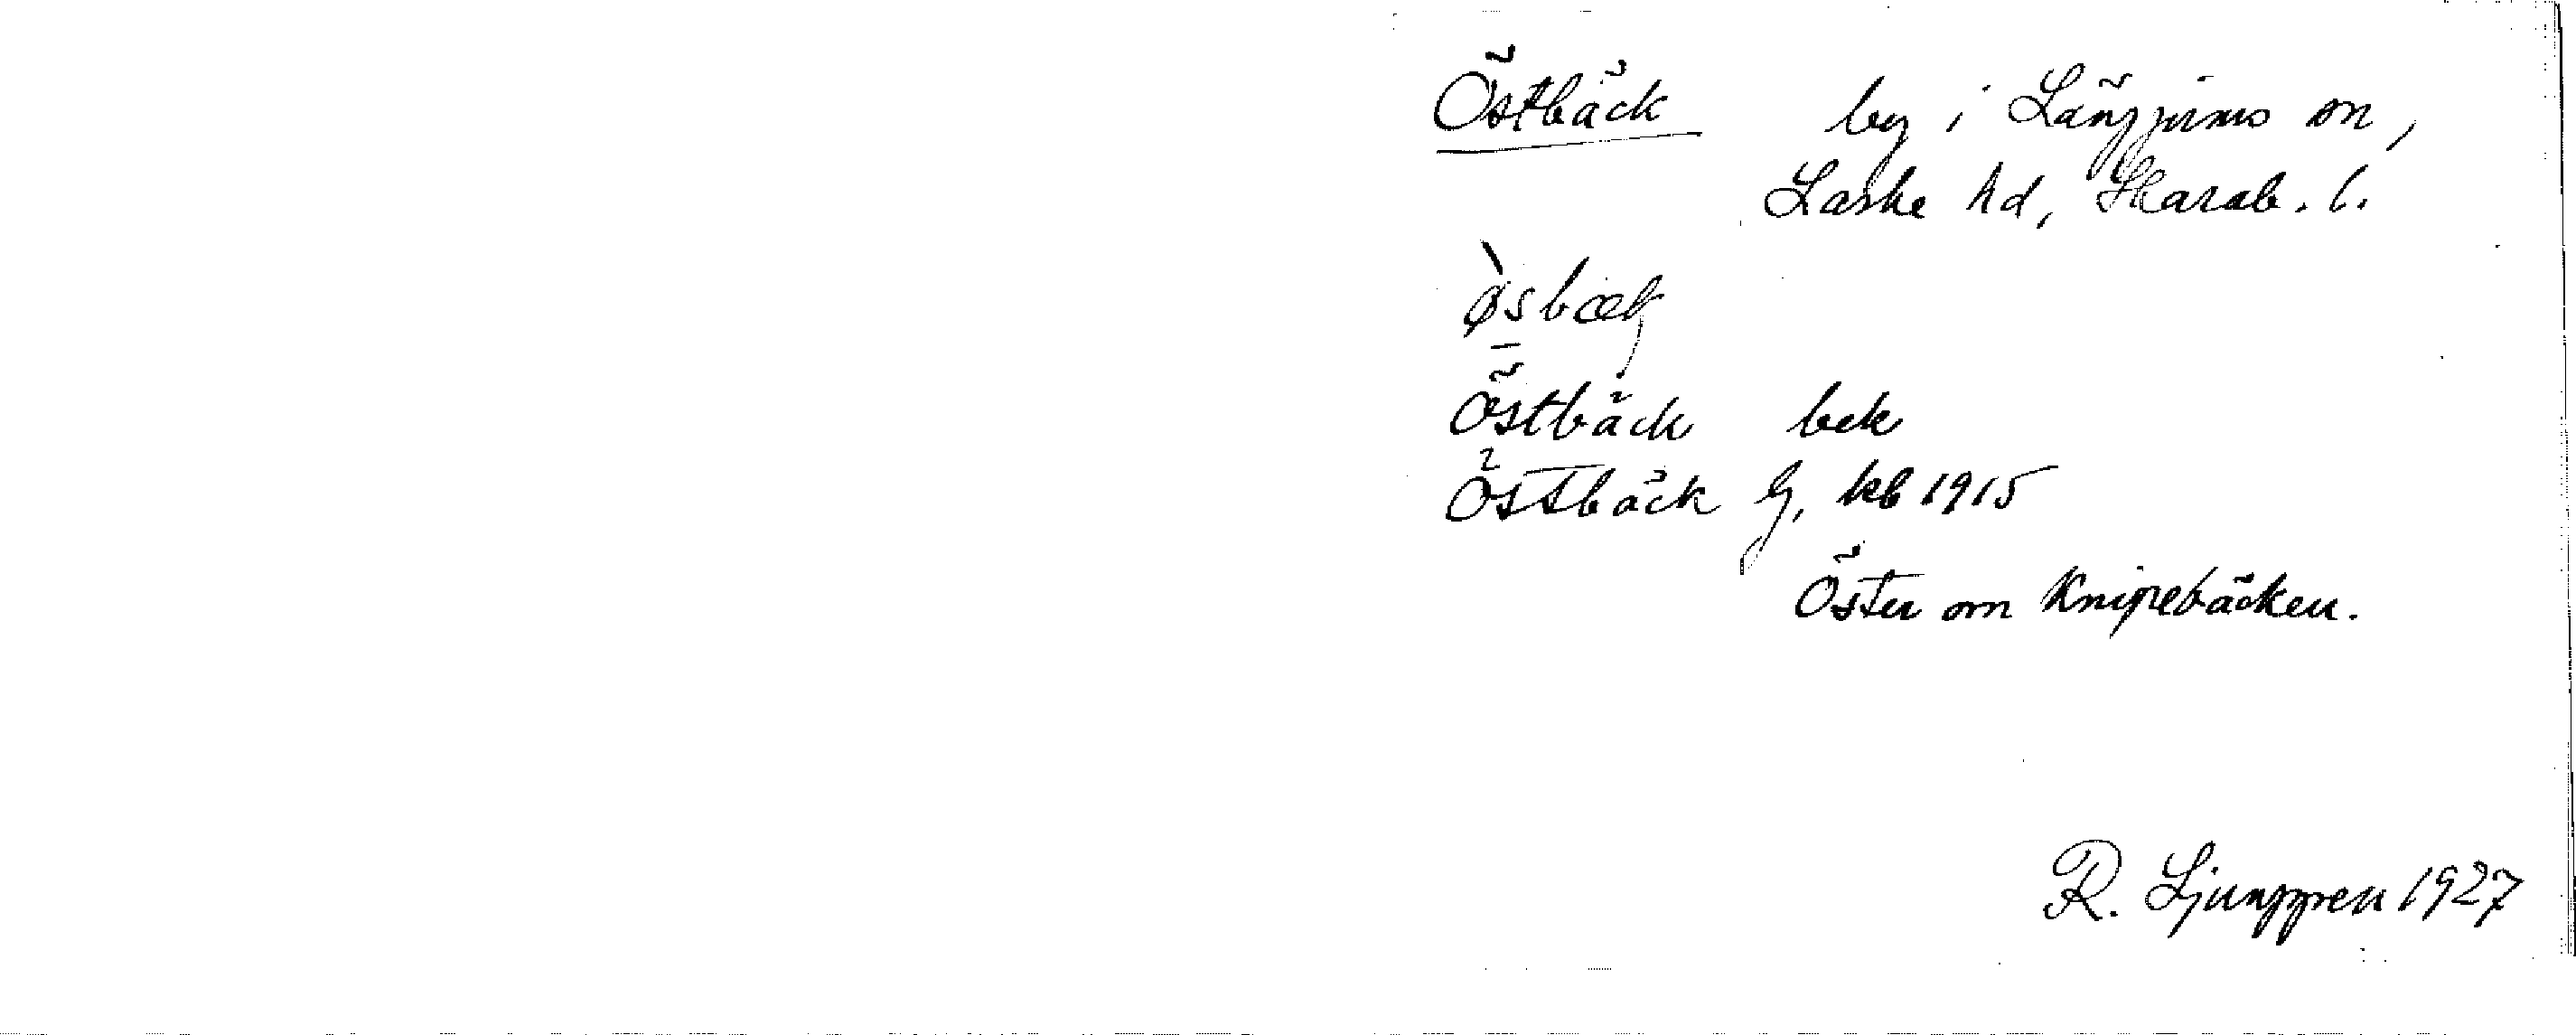 Östbäck by i Längjums sn,
Laske hd, Skarab. l.
ø̀sbæk
Östbäck bek
Östbäck G, kb 1915
Öster om Knipebäcken.
R. Ljunggren 1927